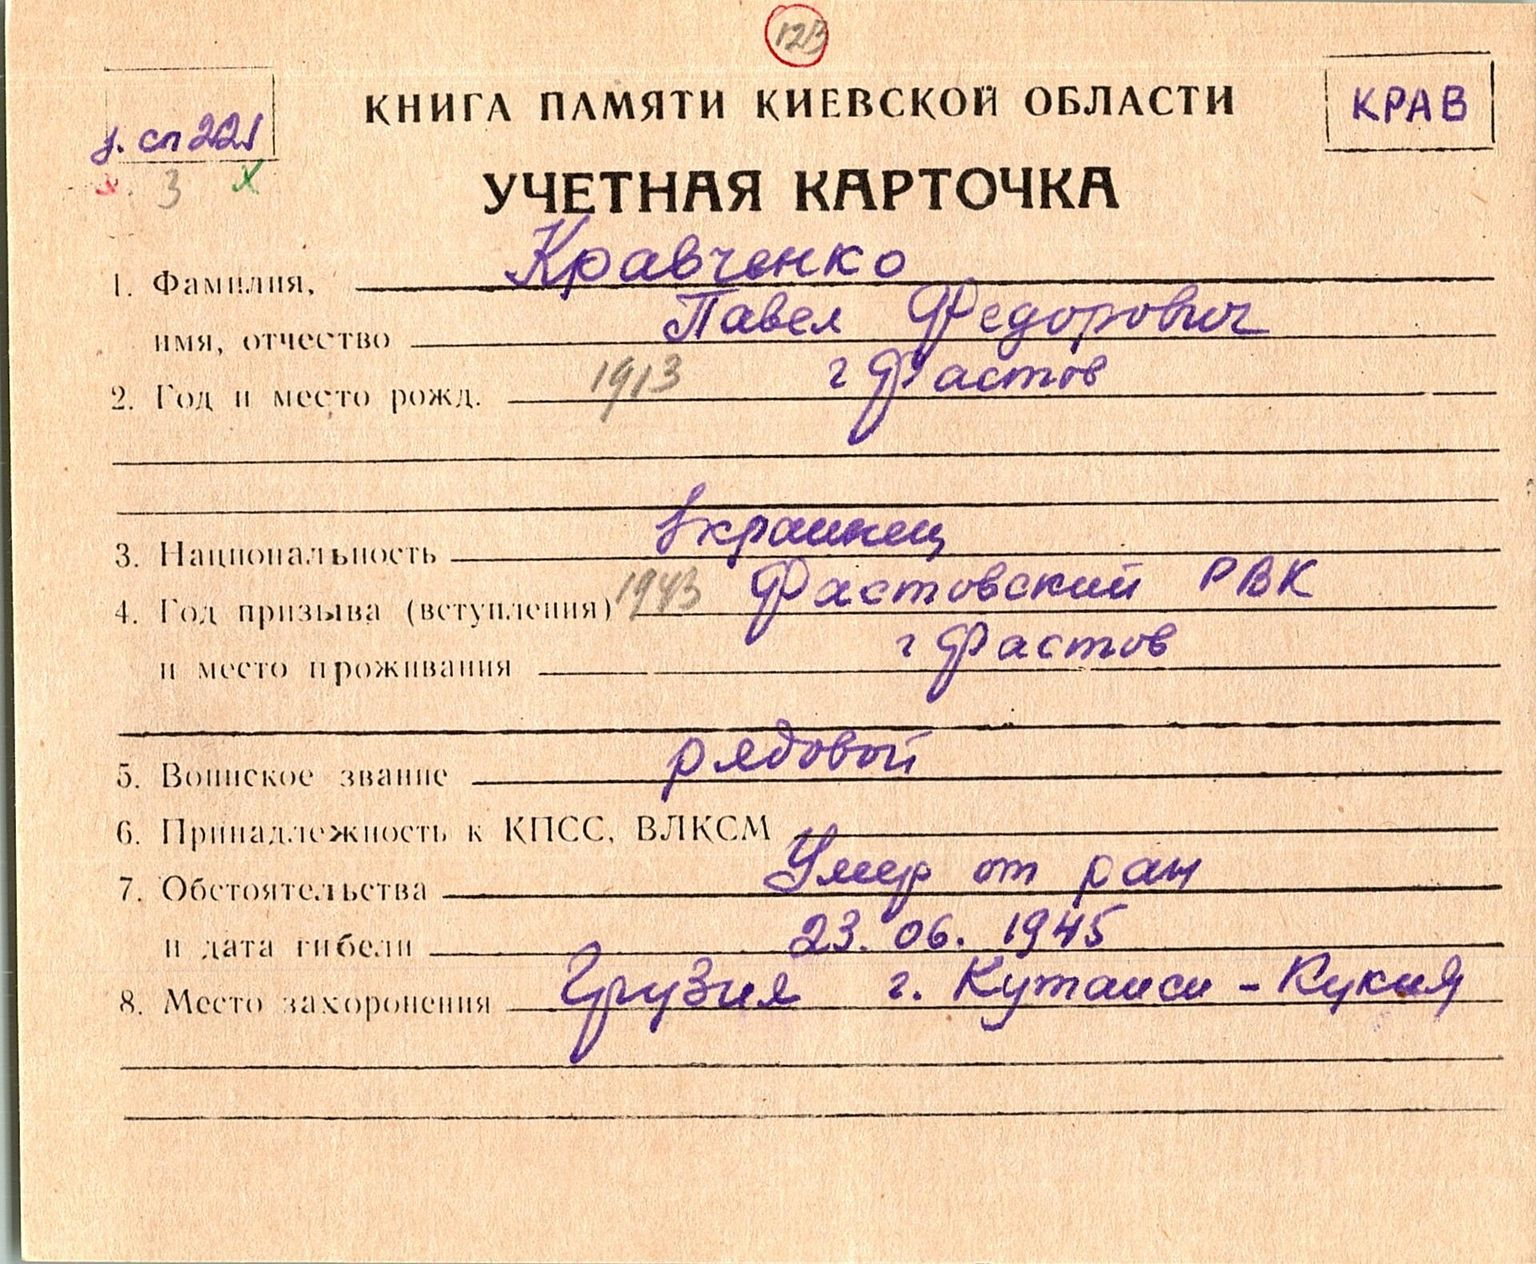 123
КНИГА ПАМЯТИ КИЕВСКОЙ ОБЛАСТИ
КРАВ
сп 221
3 х
УЧЕТНАЯ КАРТОЧКА
1. Фамилия, Кравченко
имя, отчество Павел Федорович
2. Год и место рожд. 1913 г Фастов
3. Национальность Украинец
4. Год призыва (вступления) 1943 Фастовский РВК
и место проживания г Фастов
5. Воинское звание рядовой
6. Принадлежность к КПСС, ВЛКСМ
7. Обстоятельства Умер от ран
и дата гибели 23.06.1945
8. Место захоронения Грузия г. Кутаиси - Кукия